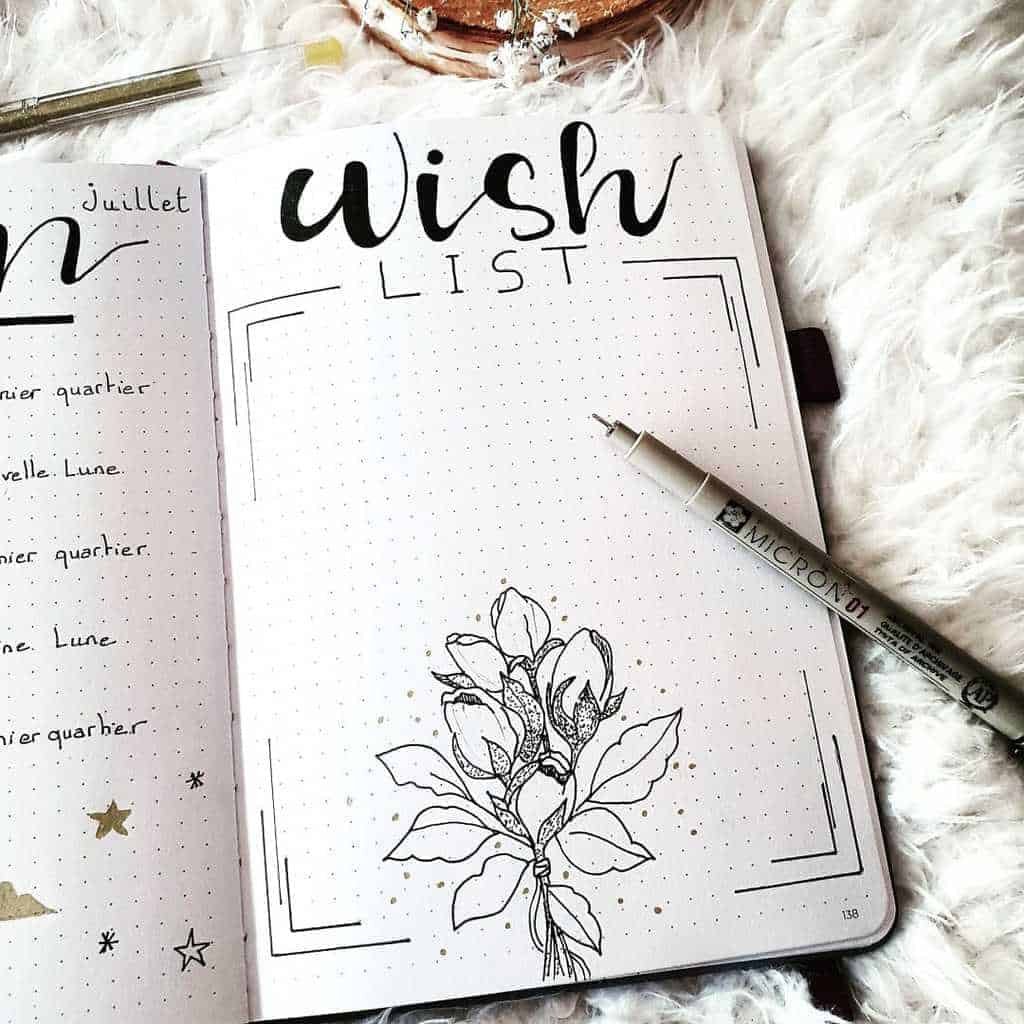 juillet
n
nier quartier
velle Lune
nier quartier
ine Lune
nier quartier
Wish
LIST
MICRON 01
QUALITÉ D'ARCHIVAGE
138